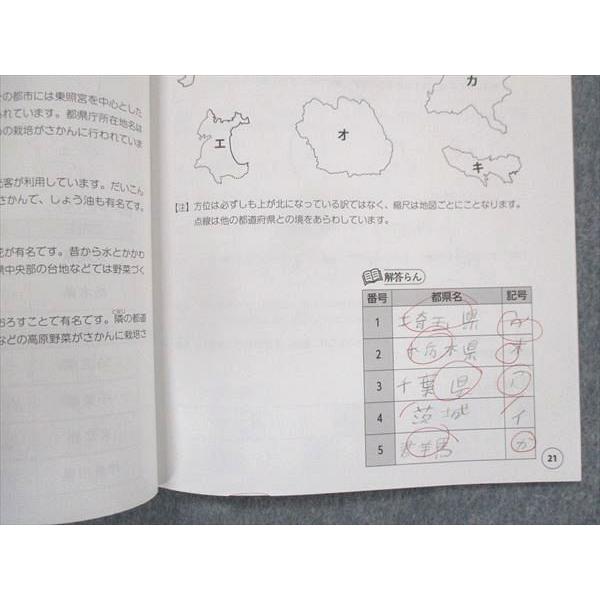 の都市には東照宮を中心とした
られています。都県庁所在地名は
の栽培がさかんに行われていま
客が利用しています。だいこん
さかんで、しょう油も有名です。
花が有名です。昔から水とかかわ
県中央部の台地などでは野菜づく
おろすことで有名です。隣の都道
などの高原野菜がさかんに栽培さ
カ
エ
オ
キ
【注】方位は必ずしも上が北になっている訳ではなく、縮尺は地図ごとにことなります。
点線は他の都道府県との境をあらわしています。
解答らん
番号 都県名 記号
1 埼玉県
2 栃木県 オ
3 千葉県
4 茨城 イ
5 群馬 カ
21